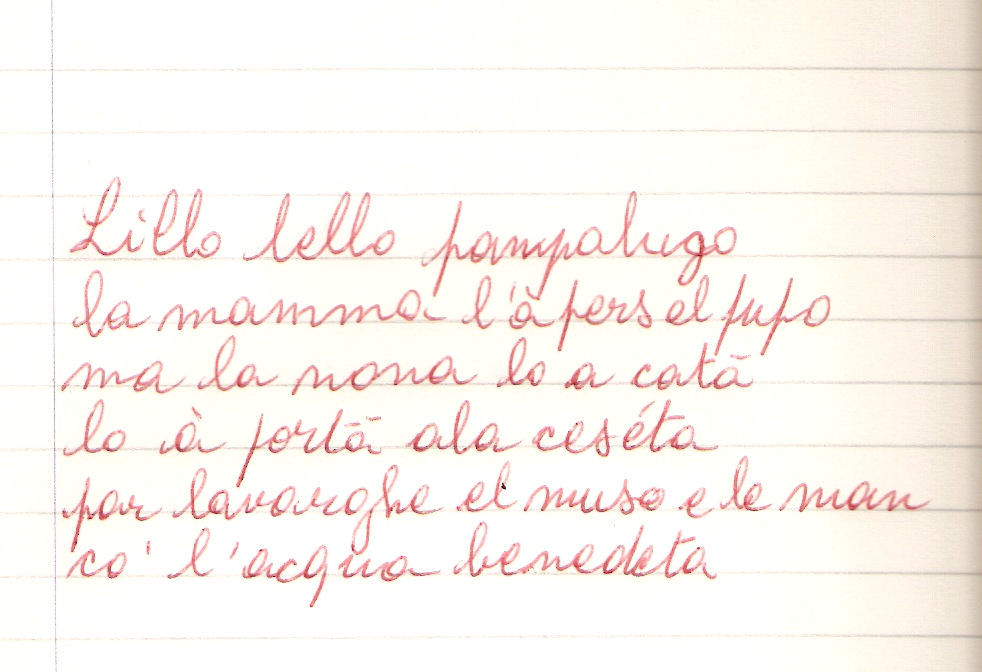 Lillo lello pampalugo
la mamma l'à pers el pupo
ma la nona lo a catā
lo à portā ala ceséta
par lavarghe el muso e le man
co' l'acqua benedeta